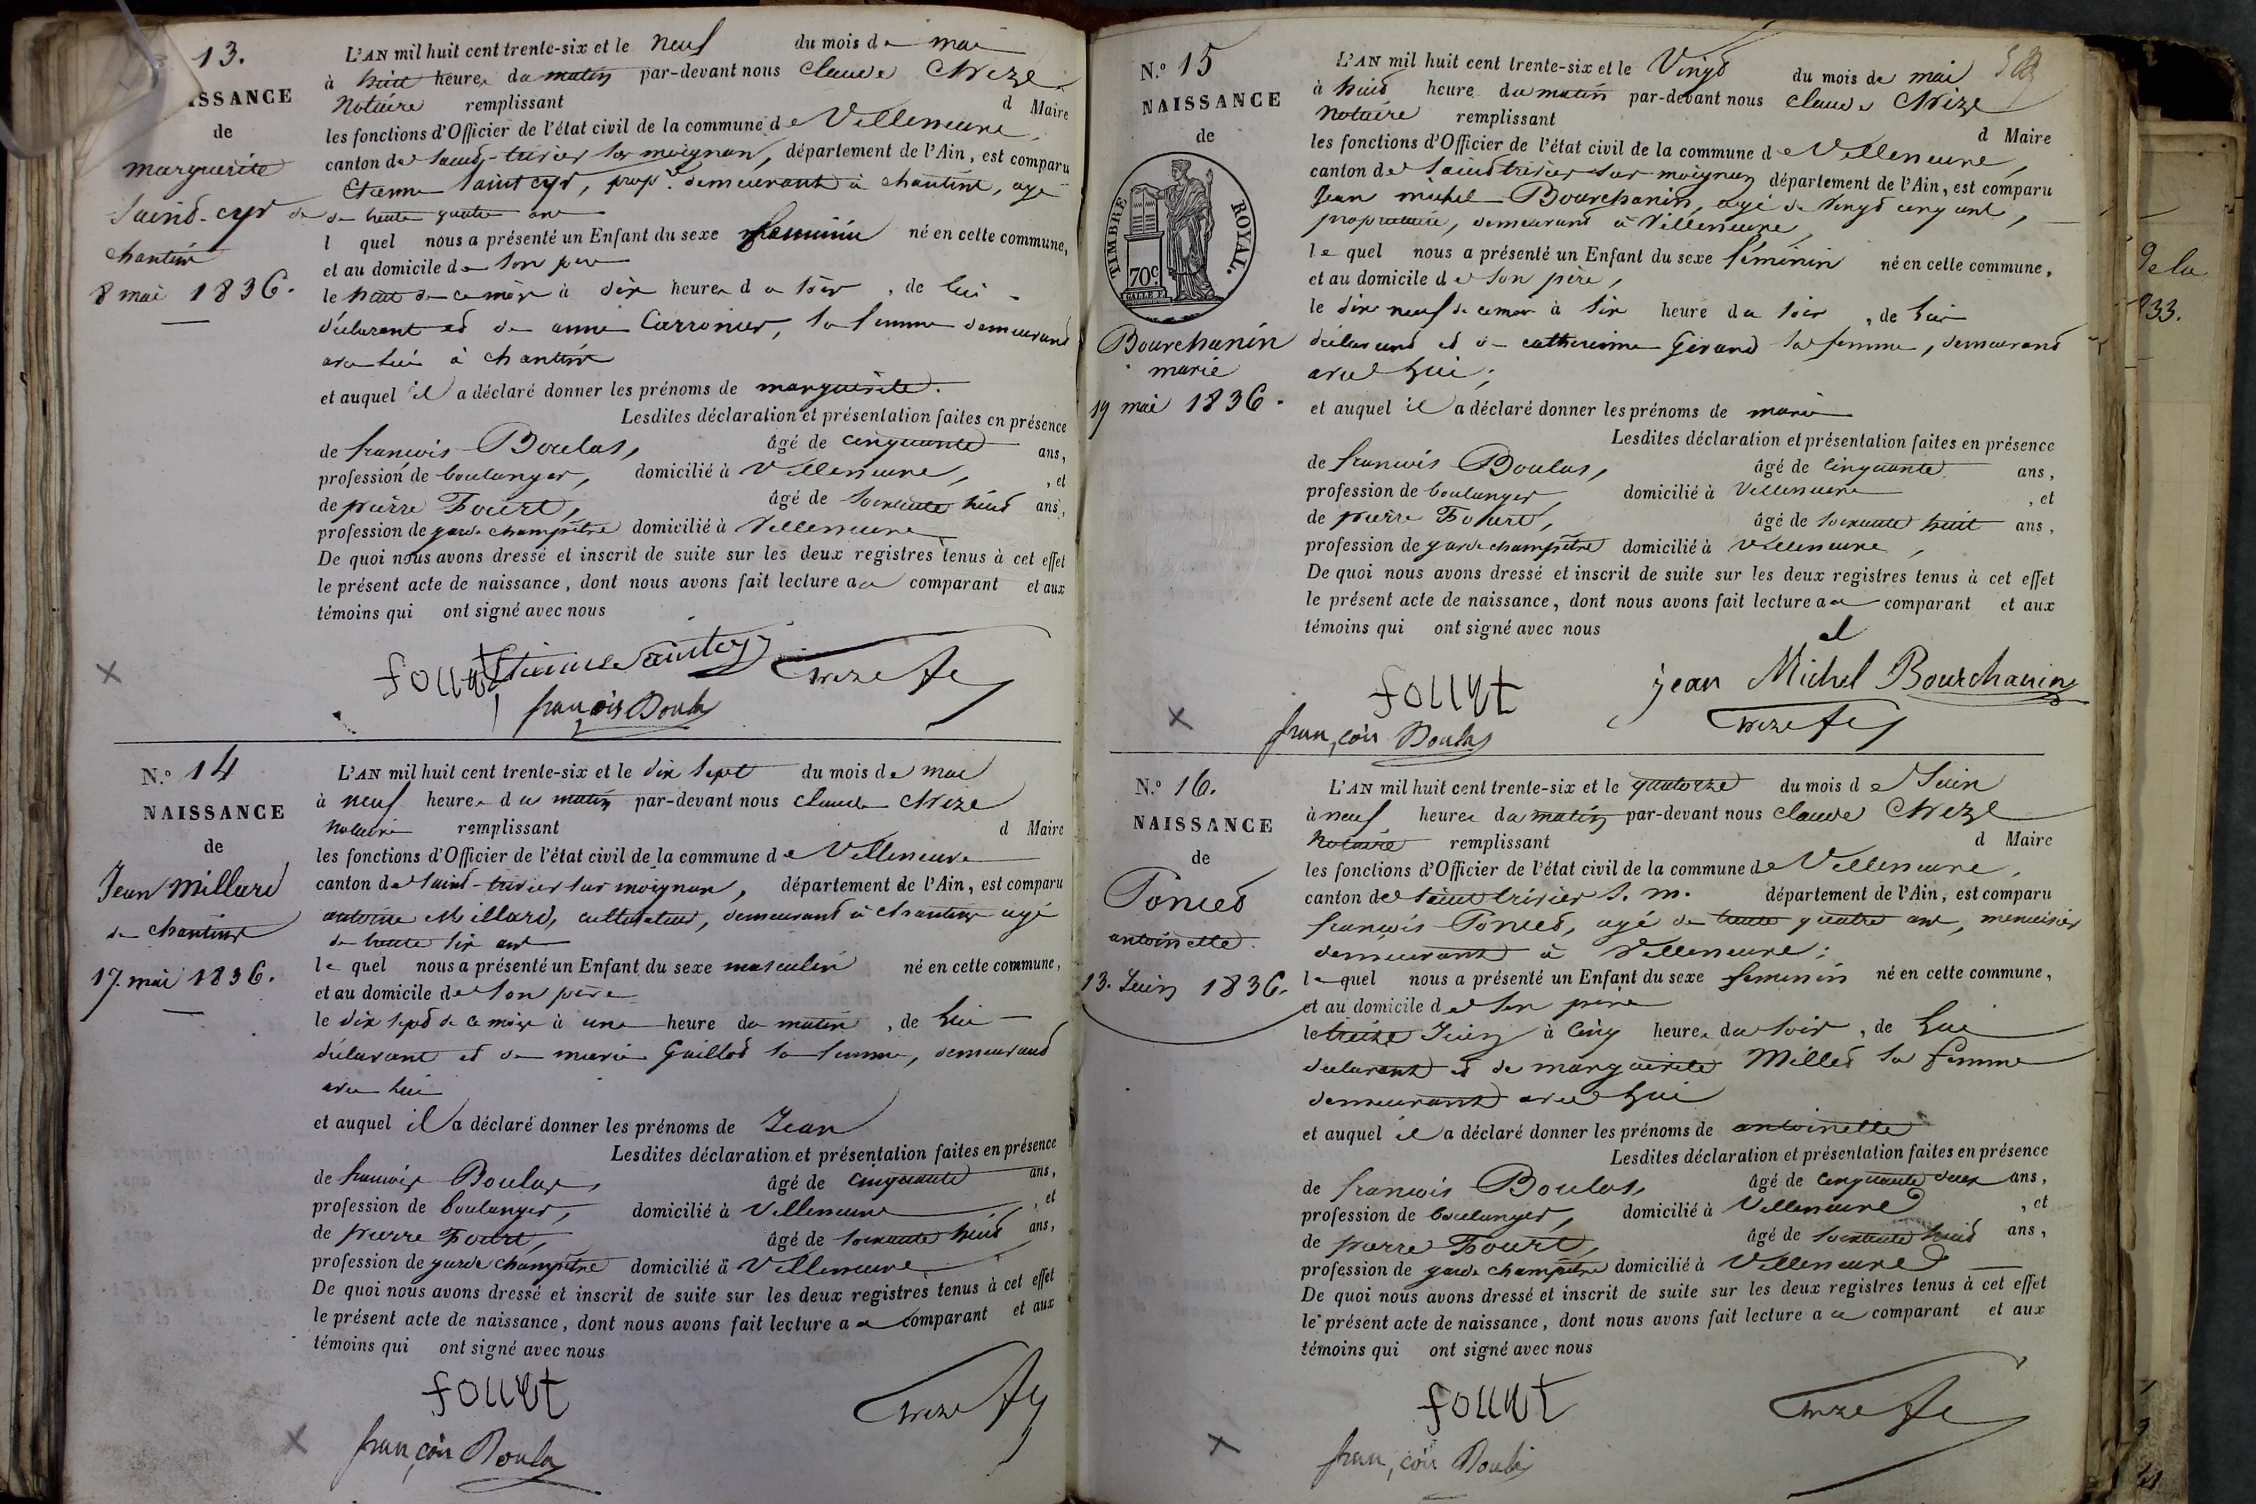 13.
ISSANCE
de
marguerite
Saint-cyr de
chantin
8 mai 1836.
L'AN mil huit cent trente-six et le neuf du mois de mai
à huit heures du matin par-devant nous Claude
Notaire remplissant d Maire
les fonctions d'Officier de l'état civil de la commune de Villeneuve
canton de Saint-trivier sur moignan, département de l'Ain, est comparu
Etienne Saint cyr, propre. demeurant à chantin, agé
de trente quatre ans
l quel nous a présenté un Enfant du sexe féminin né en cette commune,
et au domicile de son père
le huit de ce mois à dix heures du soir, de lui
déclarant et de anne Carronier, sa femme demeurant
avec lui à chantin
et auquel il a déclaré donner les prénoms de marguerite.
Lesdites déclaration et présentation faites en présence
de francois Boulas, âgé de cinquante ans,
profession de boulanger, domicilié à Villeneuve, , et
de pierre âgé de soixante huit ans,
profession de garde champêtre domicilié à Villeneuve
De quoi nous avons dressé et inscrit de suite sur les deux registres tenus à cet effet
le présent acte de naissance, dont nous avons fait lecture au comparant et aux
témoins qui ont signé avec nous
françois Boulas
N.o 14
NAISSANCE
de
Jean Millard
de chantin
17. mai 1836.
L'AN mil huit cent trente-six et le dix sept du mois de mai
à neuf heures du matin par-devant nous Claude
Notaire remplissant d Maire
les fonctions d'Officier de l'état civil de la commune de Villeneuve
canton de Saint-trivier sur moignan, département de l'Ain, est comparu
antoine Millard, cultivateur, demeurant à chantin agé
de trente six ans
le quel nous a présenté un Enfant du sexe masculin né en cette commune,
et au domicile de son père
le dix sept de ce mois à une heure du matin, de lui
déclarant et de marie Guillot sa femme, demeurant
avec lui
et auquel il a déclaré donner les prénoms de Jean
Lesdites déclaration et présentation faites en présence
de francois Boulas, âgé de cinquante ans,
profession de boulanger, domicilié à Villeneuve , et
de pierre âgé de soixante huit ans,
profession de garde champêtre domicilié à Villeneuve
De quoi nous avons dressé et inscrit de suite sur les deux registres tenus à cet effet
le présent acte de naissance, dont nous avons fait lecture au comparant et aux
témoins qui ont signé avec nous
françois Boulas
N.o 15
NAISSANCE
de
TIMBRE ROYAL.
70c.
Bourchanin
marie
19 mai 1836.
L'AN mil huit cent trente-six et le vingt du mois de mai
à huit heure du matin par-devant nous Claude
Notaire remplissant d Maire
les fonctions d'Officier de l'état civil de la commune de Villeneuve,
canton de Saint trivier sur moignan département de l'Ain, est comparu
Jean michel Bourchanin, agé de vingt cinq ans,
propriétaire, demeurant à Villeneuve,
le quel nous a présenté un Enfant du sexe féminin né en cette commune,
et au domicile de son père,
le dix neuf de ce mois à six heure du soir, de lui
déclarant et de catherine Girand sa femme, demeurant
avec lui;
et auquel il a déclaré donner les prénoms de marie
Lesdites déclaration et présentation faites en présence
de francois Boulas, âgé de cinquante ans,
profession de boulanger, domicilié à Villeneuve , et
de pierre âgé de soixante huit ans,
profession de garde champêtre domicilié à Villeneuve,
De quoi nous avons dressé et inscrit de suite sur les deux registres tenus à cet effet
le présent acte de naissance, dont nous avons fait lecture au comparant et aux
témoins qui ont signé avec nous
jean Michel Bourchanin
françois Boulas
N.o 16.
NAISSANCE
de
Poncet
antoinette.
13. Juin 1836.
L'AN mil huit cent trente-six et le quatorze du mois de Juin
à neuf heures du matin par-devant nous Claude
Notaire remplissant d Maire
les fonctions d'Officier de l'état civil de la commune de Villeneuve,
canton de Saint trivier S. m. département de l'Ain, est comparu
françois Poncet, agé de trente quatre ans, menuisier
demeurant à Villeneuve;
le quel nous a présenté un Enfant du sexe feminin né en cette commune,
et au domicile de son père
le treize Juin à cinq heures du soir, de lui
déclarant et de marguerite Millet sa femme
demeurant avec lui
et auquel il a déclaré donner les prénoms de antoinette
Lesdites déclaration et présentation faites en présence
de francois Boulas, âgé de cinquante deux ans,
profession de boulanger, domicilié à Villeneuve , et
de pierre âgé de soixante huit ans,
profession de garde champêtre domicilié à Villeneuve
De quoi nous avons dressé et inscrit de suite sur les deux registres tenus à cet effet
le présent acte de naissance, dont nous avons fait lecture au comparant et aux
témoins qui ont signé avec nous
françois Boulas
de la
33.